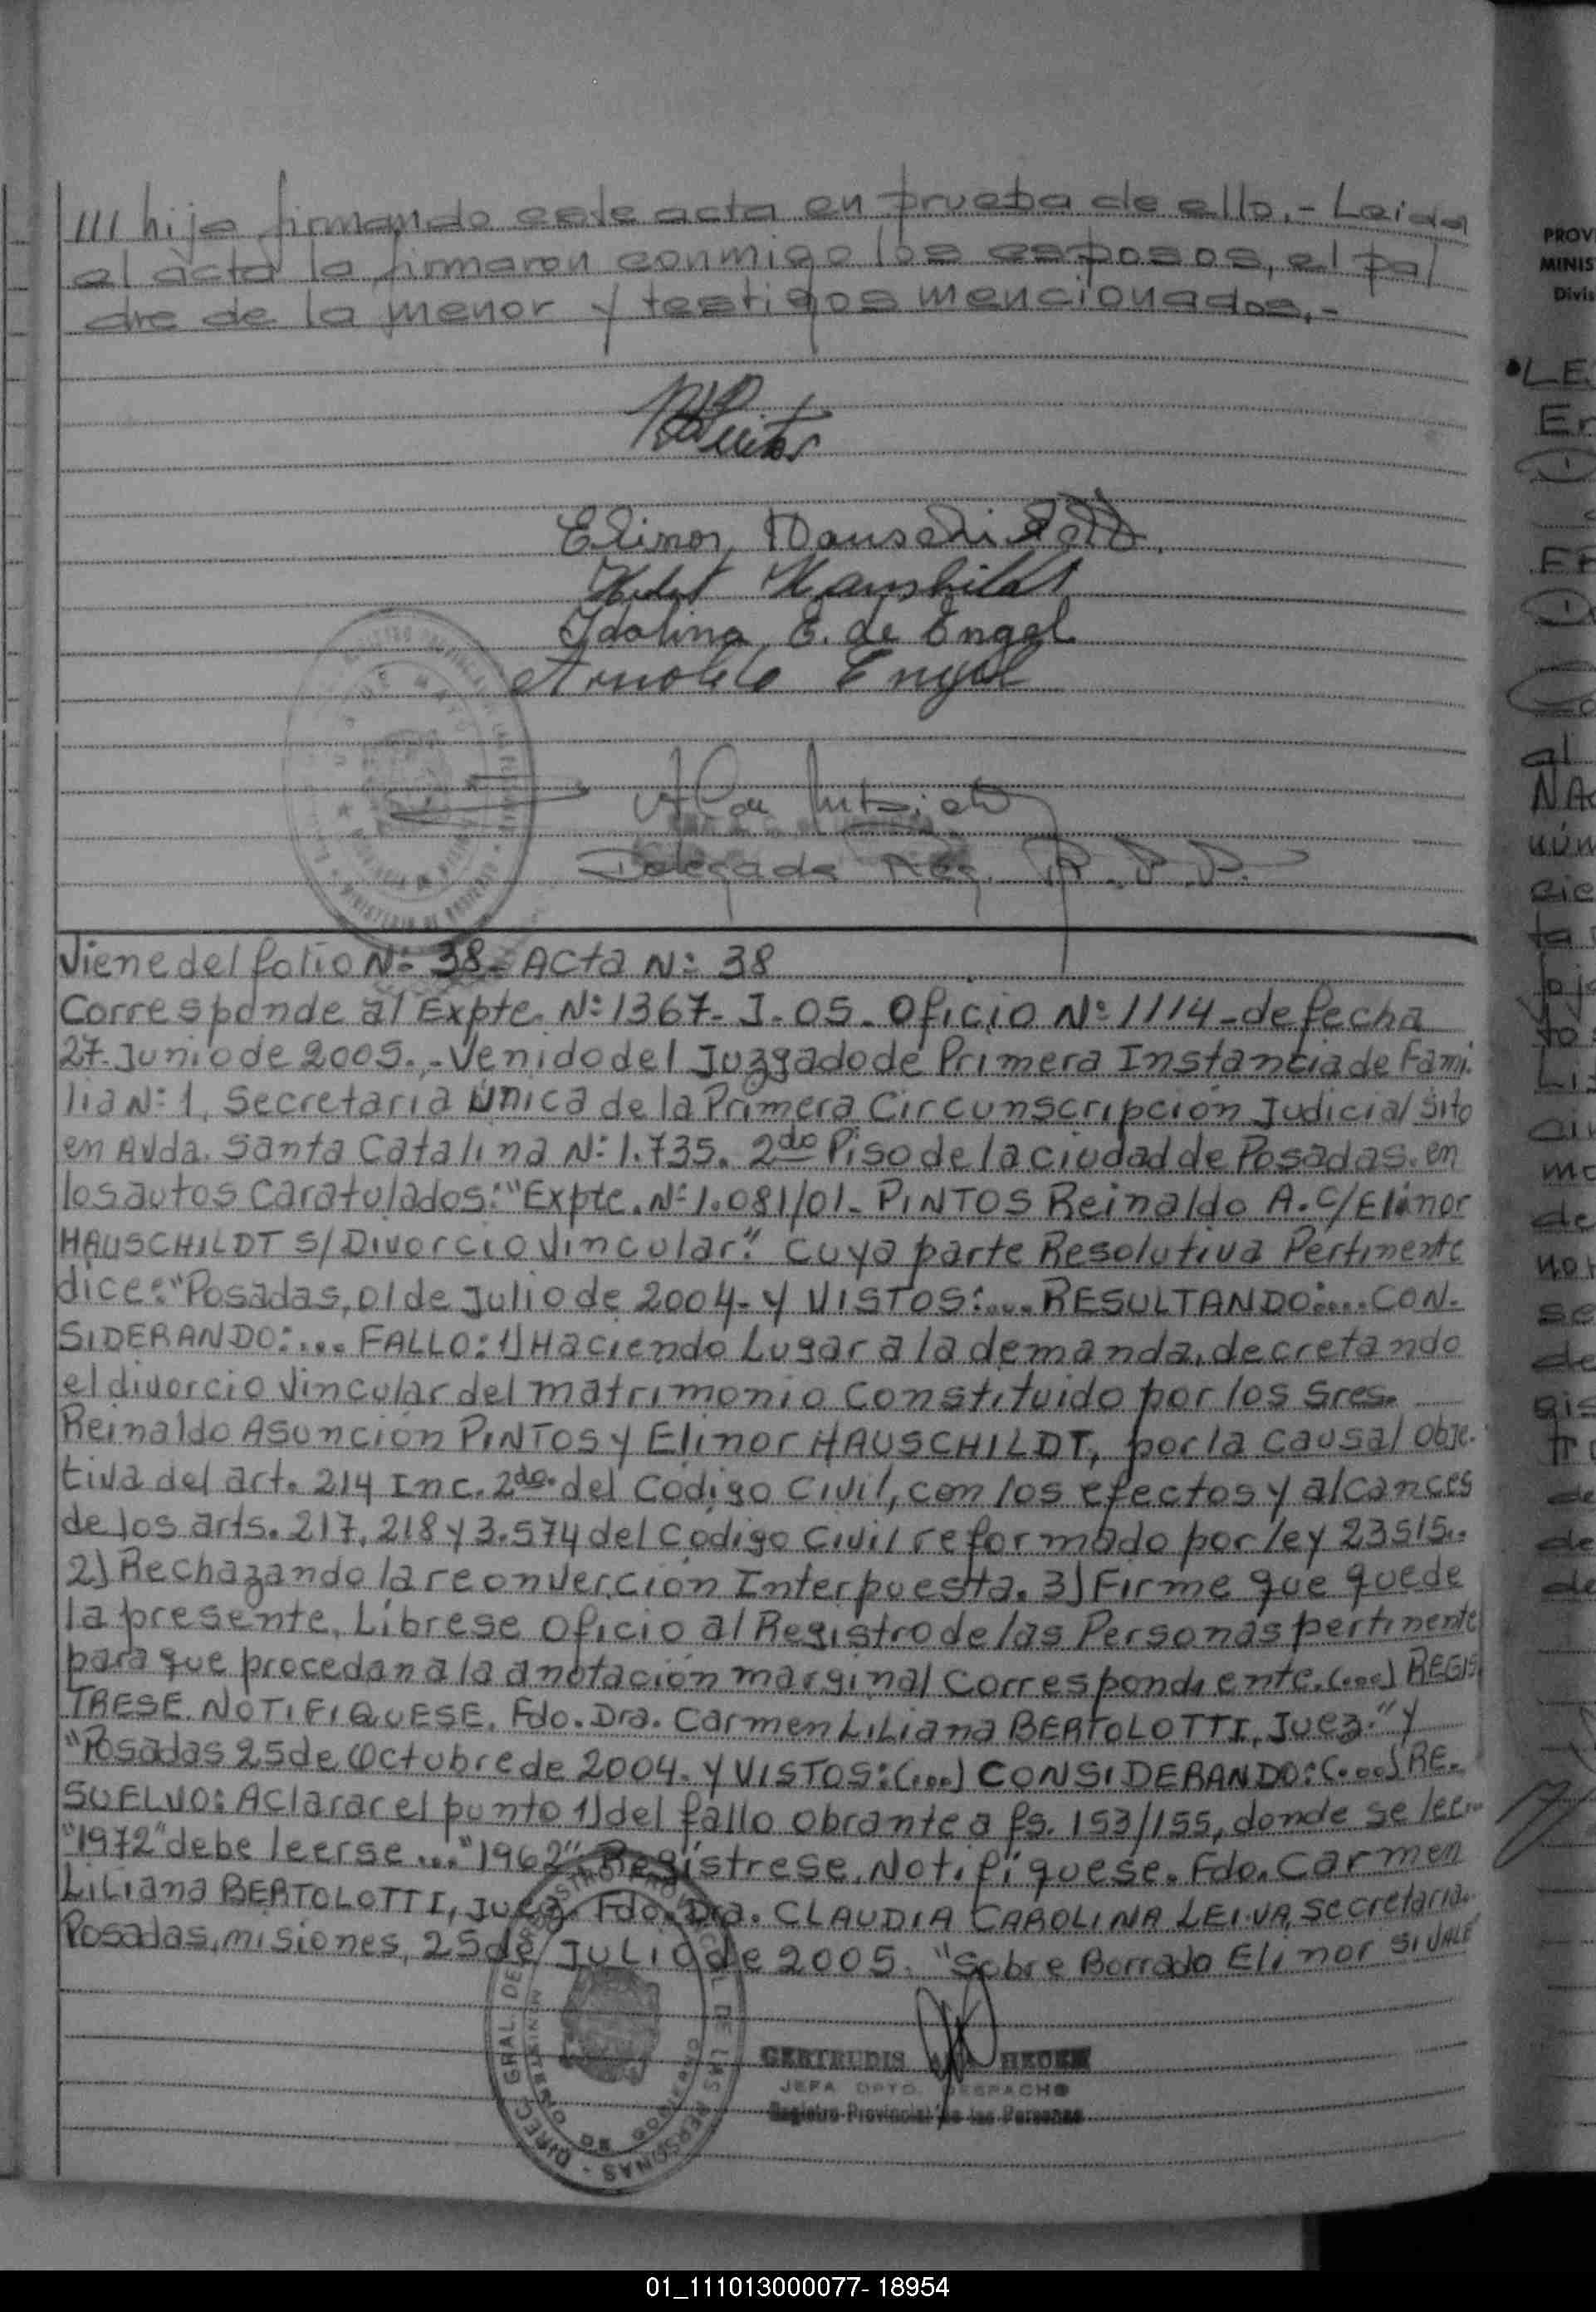 III hija firmando este acta en prueba de ello.- Leida
el acta la firmaron conmigo los esposos, el pa/
dre de la menor y testigos mencionados.-
Elinor Hauschildt
Idalina E. de Engel
Arnoldo Engel
Delegada Reg. P. P.
Viene del folio Nº 38- Acta Nº 38
Corresponde al Expte. Nº 1367- J-05- Oficio Nº 1114- de fecha
27-Junio de 2005.- Venido del Juzgado de Primera Instancia de Fami-
lia Nº 1, Secretaria Única de la Primera Circunscripción Judicial Sito
en Avda. Santa Catalina Nº 1.735. 2do Piso de la ciudad de Posadas. en
los autos Caratulados: "Expte. Nº 1.081/01- PINTOS Reinaldo A. C/ Elinor
HAUSCHILDT S/ Divorcio Vincular". cuya parte Resolutiva Pertinente
dice: "Posadas, 01 de Julio de 2004- Y VISTOS:.... RESULTANDO:.... CON-
SIDERANDO:... FALLO: 1) Haciendo Lugar a la demanda, decretando
el divorcio Vincular del matrimonio Constituido por los Sres.
Reinaldo Asunción PINTOS y Elinor HAUSCHILDT, por la causal obje-
tiva del art. 214 Inc. 2do. del Código Civil, con los efectos y alcances
de los arts. 217, 218 y 3.574 del Código Civil reformado por ley 23515..
2) Rechazando la reonverción Interpuesta. 3) Firme que quede
la presente, Líbrese Oficio al Registro de las Personas pertinente
para que procedan a la anotación marginal Correspondiente. (...) REGIS
TRESE. NOTIFIQUESE. Fdo. Dra. Carmen Liliana BERTOLOTTI, Juez." y
"Posadas 25 de Octubre de 2004. Y VISTOS: (...) CONSIDERANDO: (....) RE-
SUELVO: Aclarar el punto 1) del fallo obrante a fs. 153/155, donde se lee...
"1972" debe leerse... "1962". Regístrese. Notifíquese. Fdo. Carmen
Liliana BERTOLOTTI, Juez. Fdo. Dra. CLAUDIA CAROLINA LEIVA, Secretaria.
Posadas, misiones, 25 de JULIO de 2005. "Sobre Borrado Elinor SI VALE"
GERTRUDIS
JEFA DPTO. DESPACHO
Registro Provincial de las Personas
01_111013000077- 18954